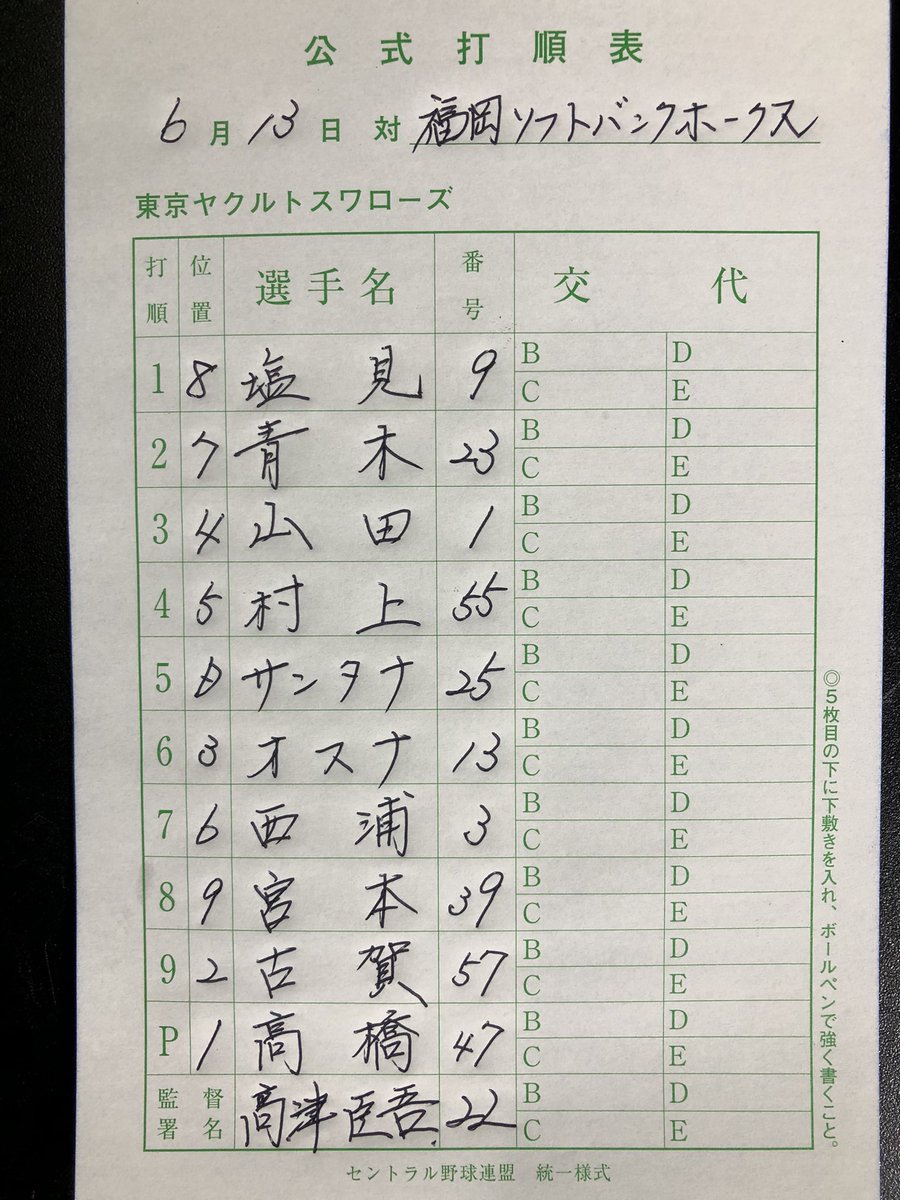 公式打順表
6月13日 対 福岡ソフトバンクホークス
東京ヤクルトスワローズ
打順 位置 選手名 番号 交代
1 8 塩見 9 B D C E
2 7 青木 23 B D C E
3 4 山田 1 B D C E
4 5 村上 55 B D C E
5 D サンタナ 25 B D C E
6 3 オスナ 13 B D C E
7 6 西浦 3 B D C E
8 9 宮本 39 B D C E
9 2 古賀 57 B D C E
P 1 高橋 47 B D C E
監督署名 高津臣吾 22 B D C E
◎5枚目の下に下敷きを入れ、ボールペンで強く書くこと。
セントラル野球連盟 統一様式